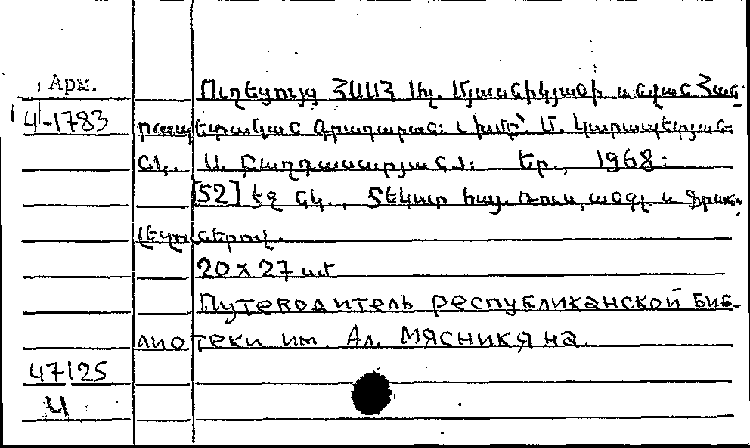 Арм.
Ուղեցույց ՀՍՍՀ Ալ. Մյասնիկյանի անվան Հան-
4-1783
րապետական գրադարան: Խմբ՝ Մ. Կարապետյան
Ա. Բաղդասարյան: Եր., 1968:
[52] էջ նկ., Տեկստ հայ. ռուս, անգլ. և ֆրանս.
լեզուներով.
20 x 27 սմ
Путеводитель республиканской биб-
лиотеки им. Ал. Мясникяна.
47125
Ч